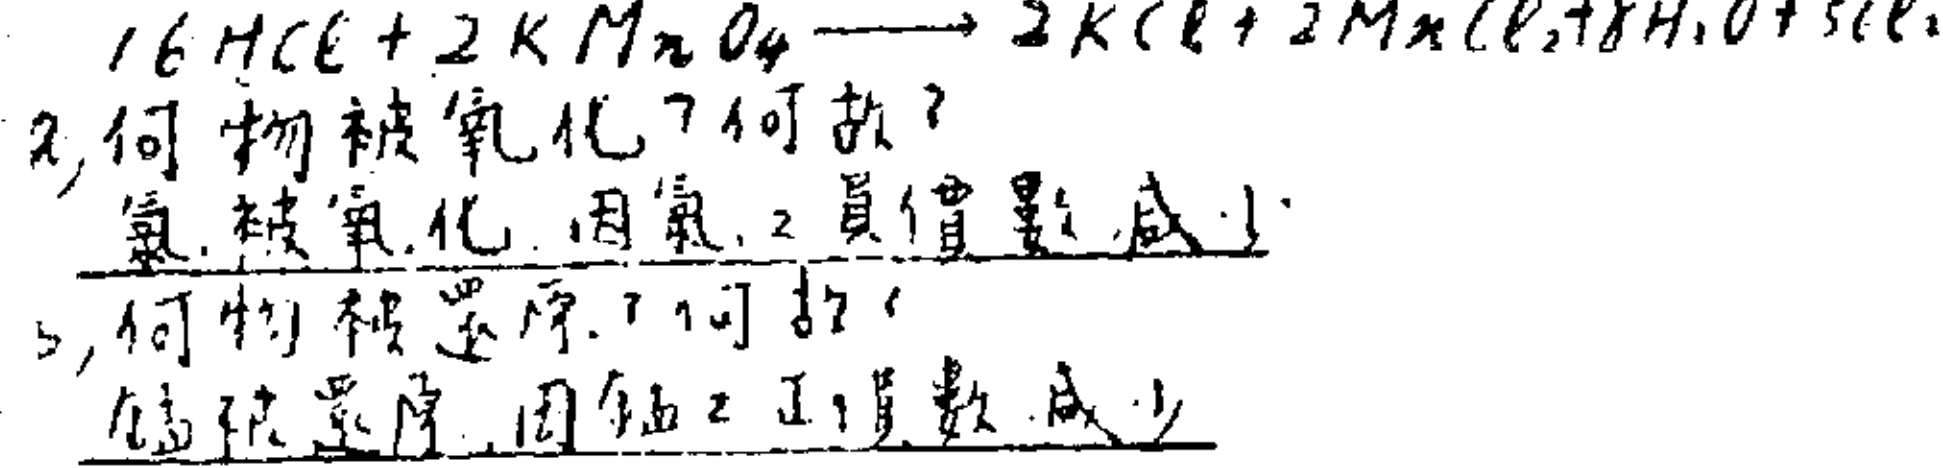 16HCl + 2KMnO₄ ⟶ 2KCl + 2MnCl₂ + 8H₂O + 5Cl₂
2, 何物被氧化？何故？
氯被氧化 因氯之負價數減少
3, 何物被還原？何故？
錳被還原 因錳之正價數減少